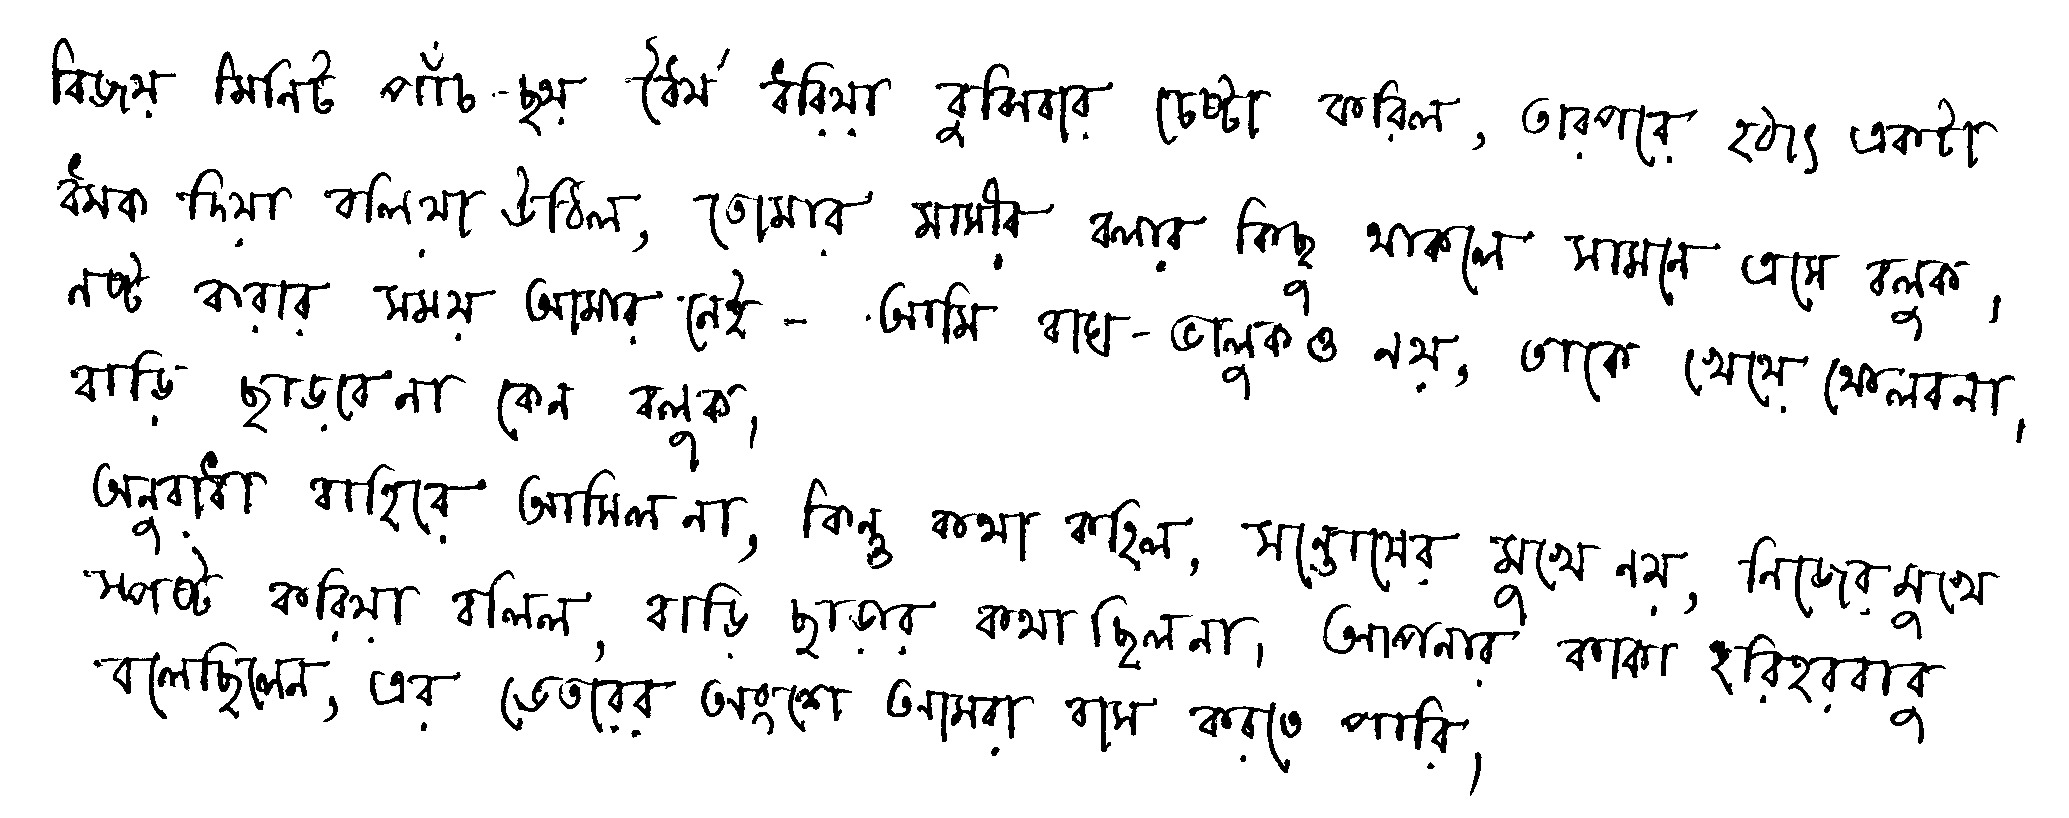 বিজয় মিনিট পাঁচ-ছয় ধৈর্য ধরিয়া বুঝিবার চেষ্টা করিল, তারপরে হঠাৎ একটা
ধমক দিয়া বলিয়া উঠিল, তোমার মাসীর বলার কিছু থাকলে সামনে এসে বলুক।
নষ্ট করার সময় আমার নেই - আমি বাঘ-ভালুকও নয়, তাকে খেয়ে ফেলবনা।
বাড়ি ছাড়বেনা কেন বলুক।
অনুরাধা বাহিরে আসিলনা, কিন্তু কথা কহিল, সন্তোষের মুখে নয়, নিজের মুখে
স্পষ্ট করিয়া বলিল, বাড়ি ছাড়ার কথা ছিলনা। আপনার কাকা হরিহরবাবু
বলেছিলেন, এর ভেতরের অংশে আমরা বাস করতে পারি।